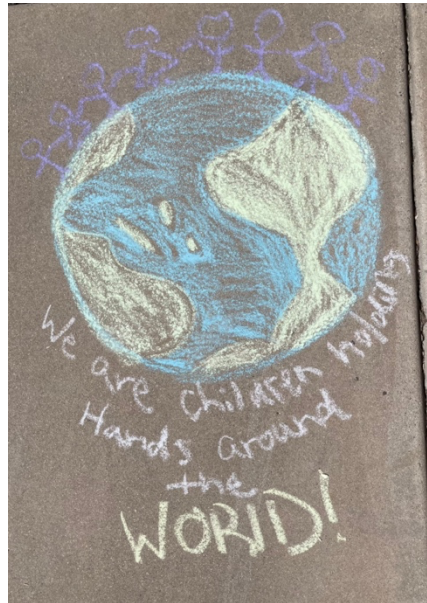 We are children holding
Hands around
the
WORLD!